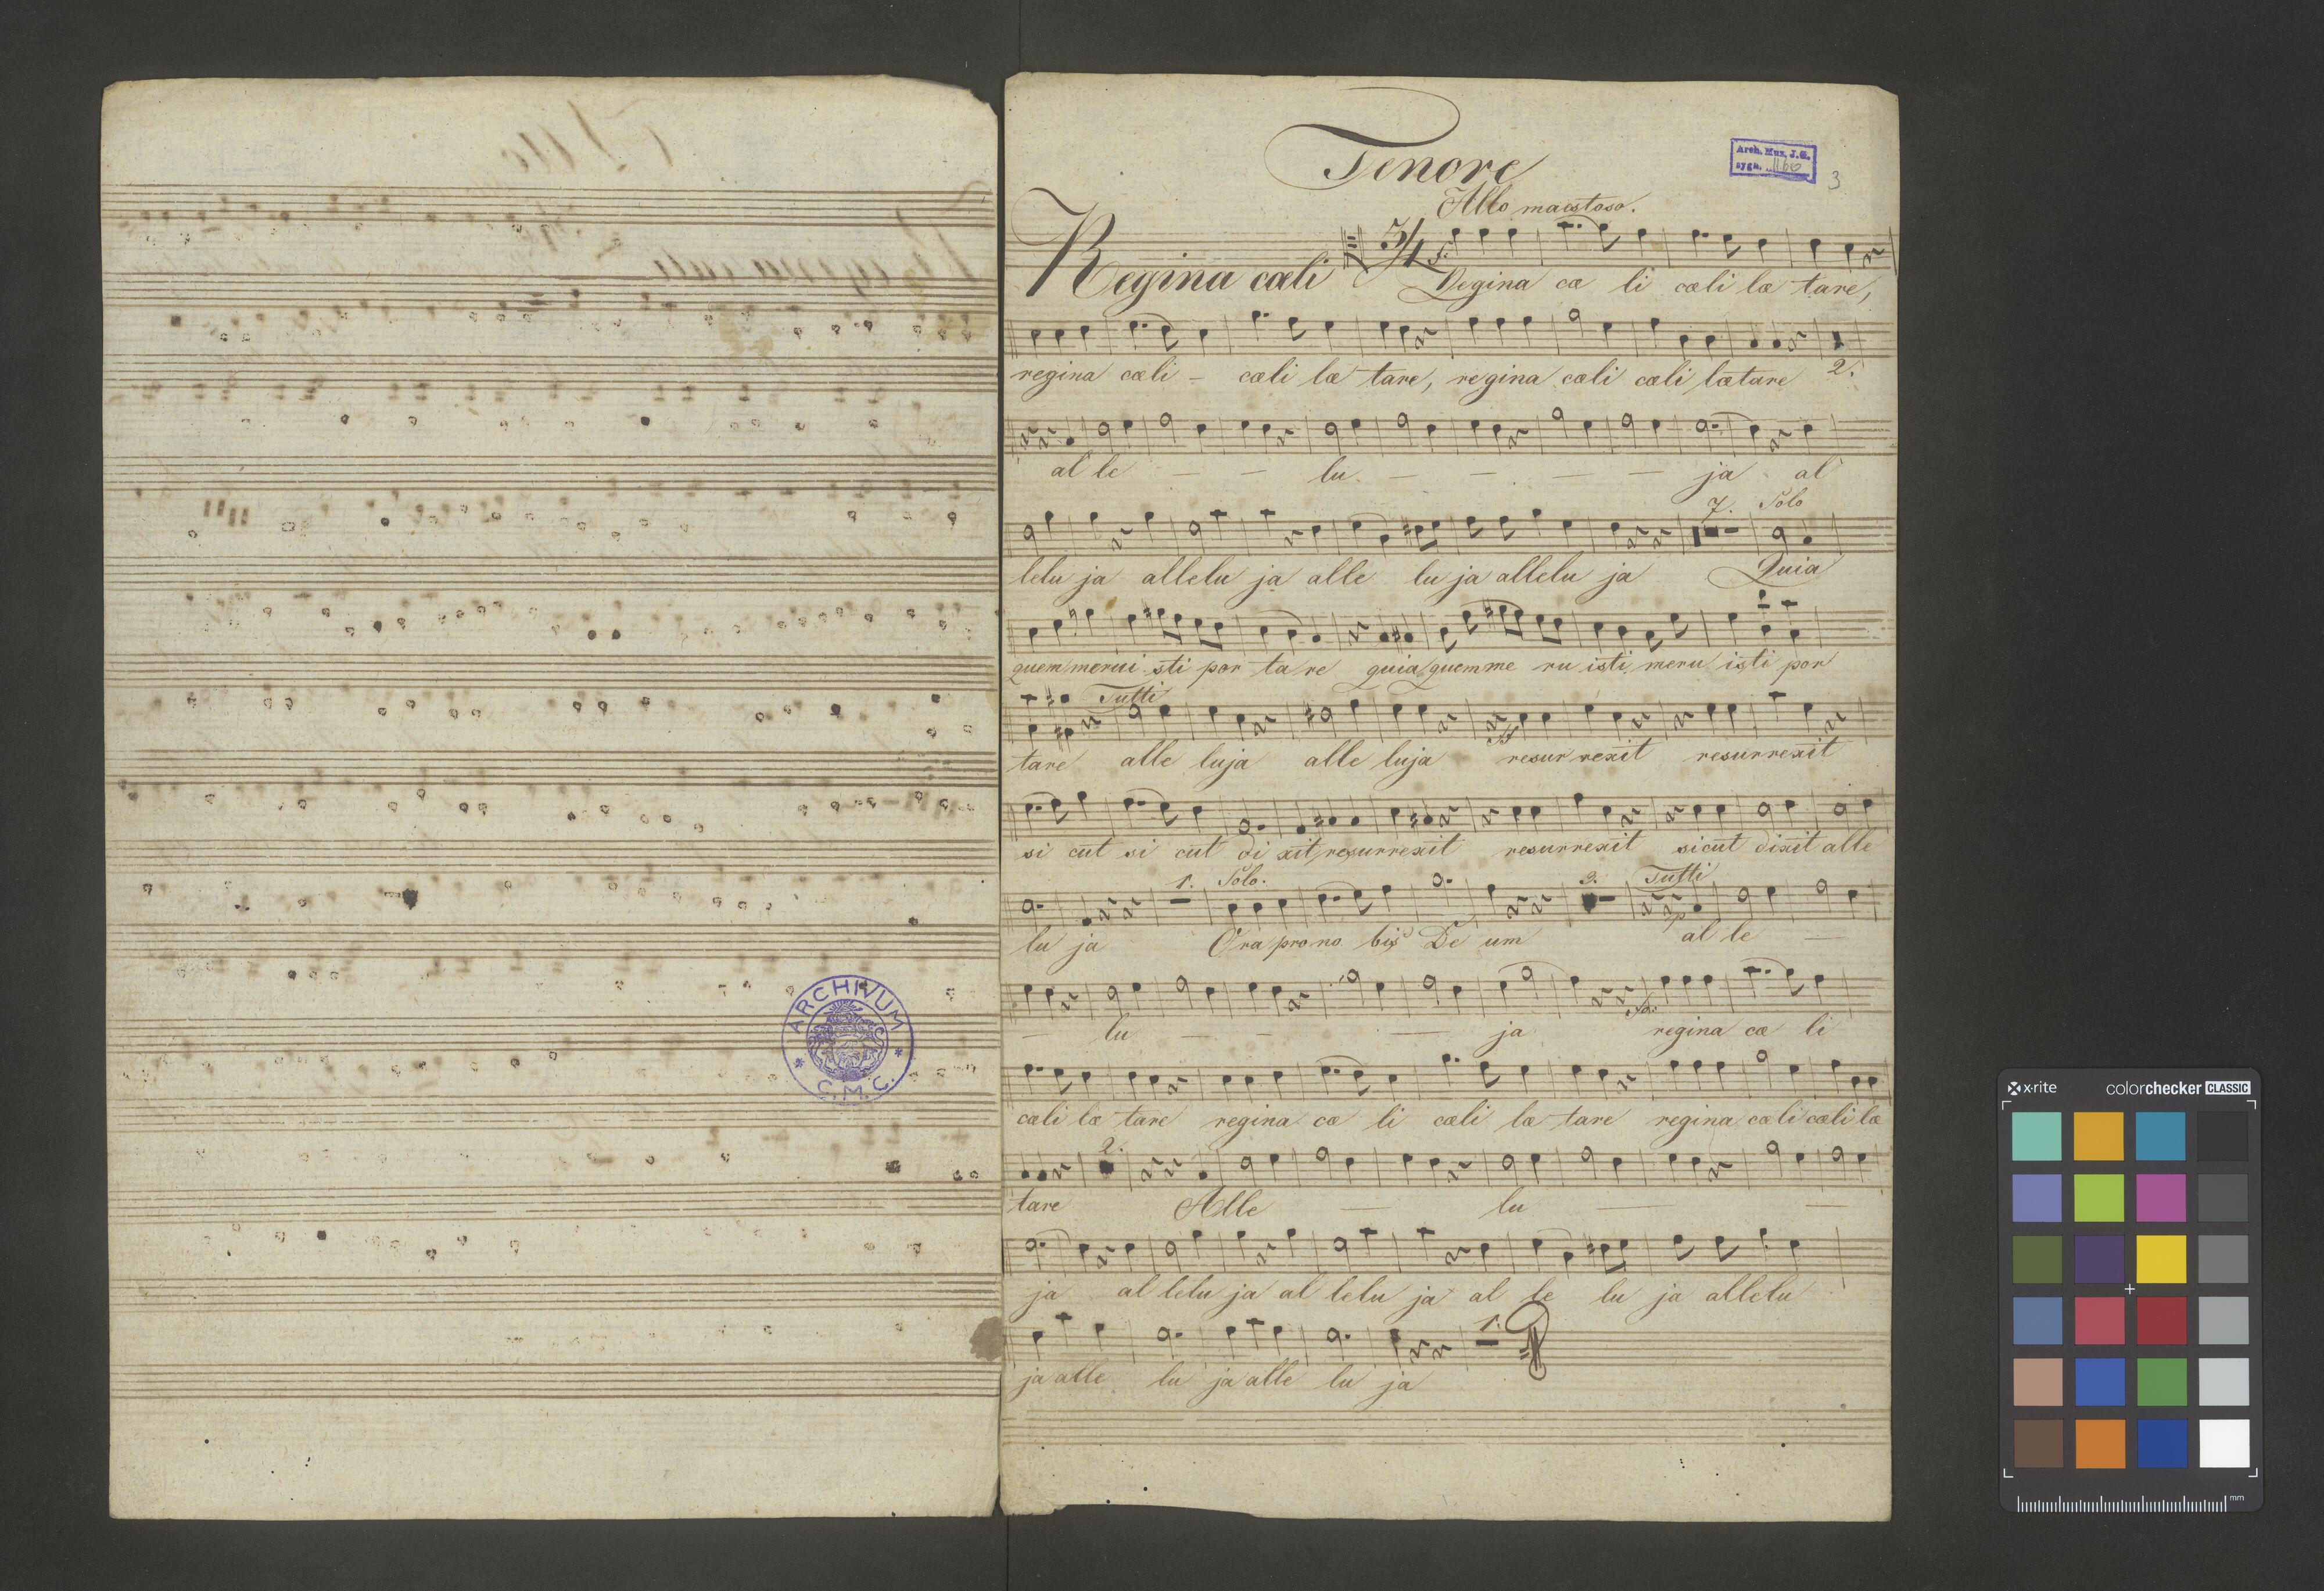 ARCHIVUM
C.M.C.
Tenore
Arch. Mus. J.G.
sygn. 1166
3
Allo maestoso.
Regina cæli 3/4 f: Regina cæ li cæli læ tare,
regina cæli - cæli læ tare, regina cæli cæli lætare 2.
al le — — lu — — — — ja al
7. Solo
lelu ja allelu ja alle lu ja allelu ja Quia
quem merui sti por ta re quia quem me ru isti meru isti por
Tutti
tare alle luja alle luja ff resur rexit resurrexit
si cut si cut di xit resurrexit resurrexit sicut dixit alle
1. Solo. 2. Tutti
lu ja Ora pro no bis De um p al le —
— lu — — — ja regina cæ li
cæli læ tare regina cæ li cæli læ tare regina cæli cæli læ
2.
tare Alle — lu — —
ja al lelu ja al lelu ja al le lu ja allelu
1.
ja alle lu ja alle lu ja
x-rite colorchecker CLASSIC
mm